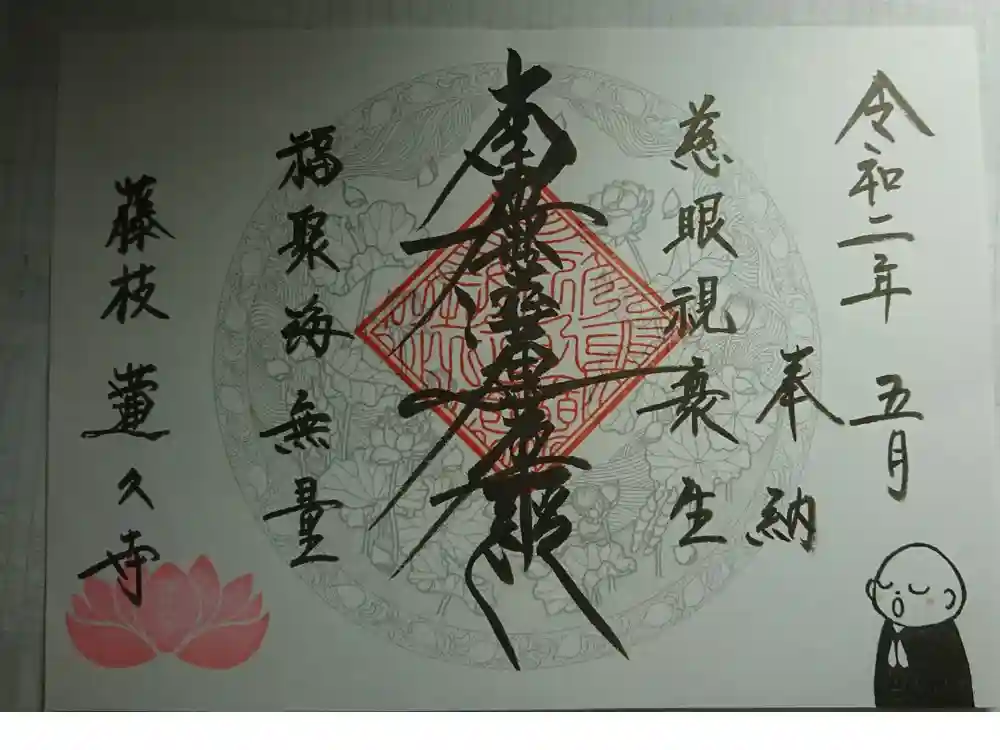 令和二年 五月
奉納
慈眼視衆生
南無妙法蓮華経
福聚海無量
藤枝 蓮久寺